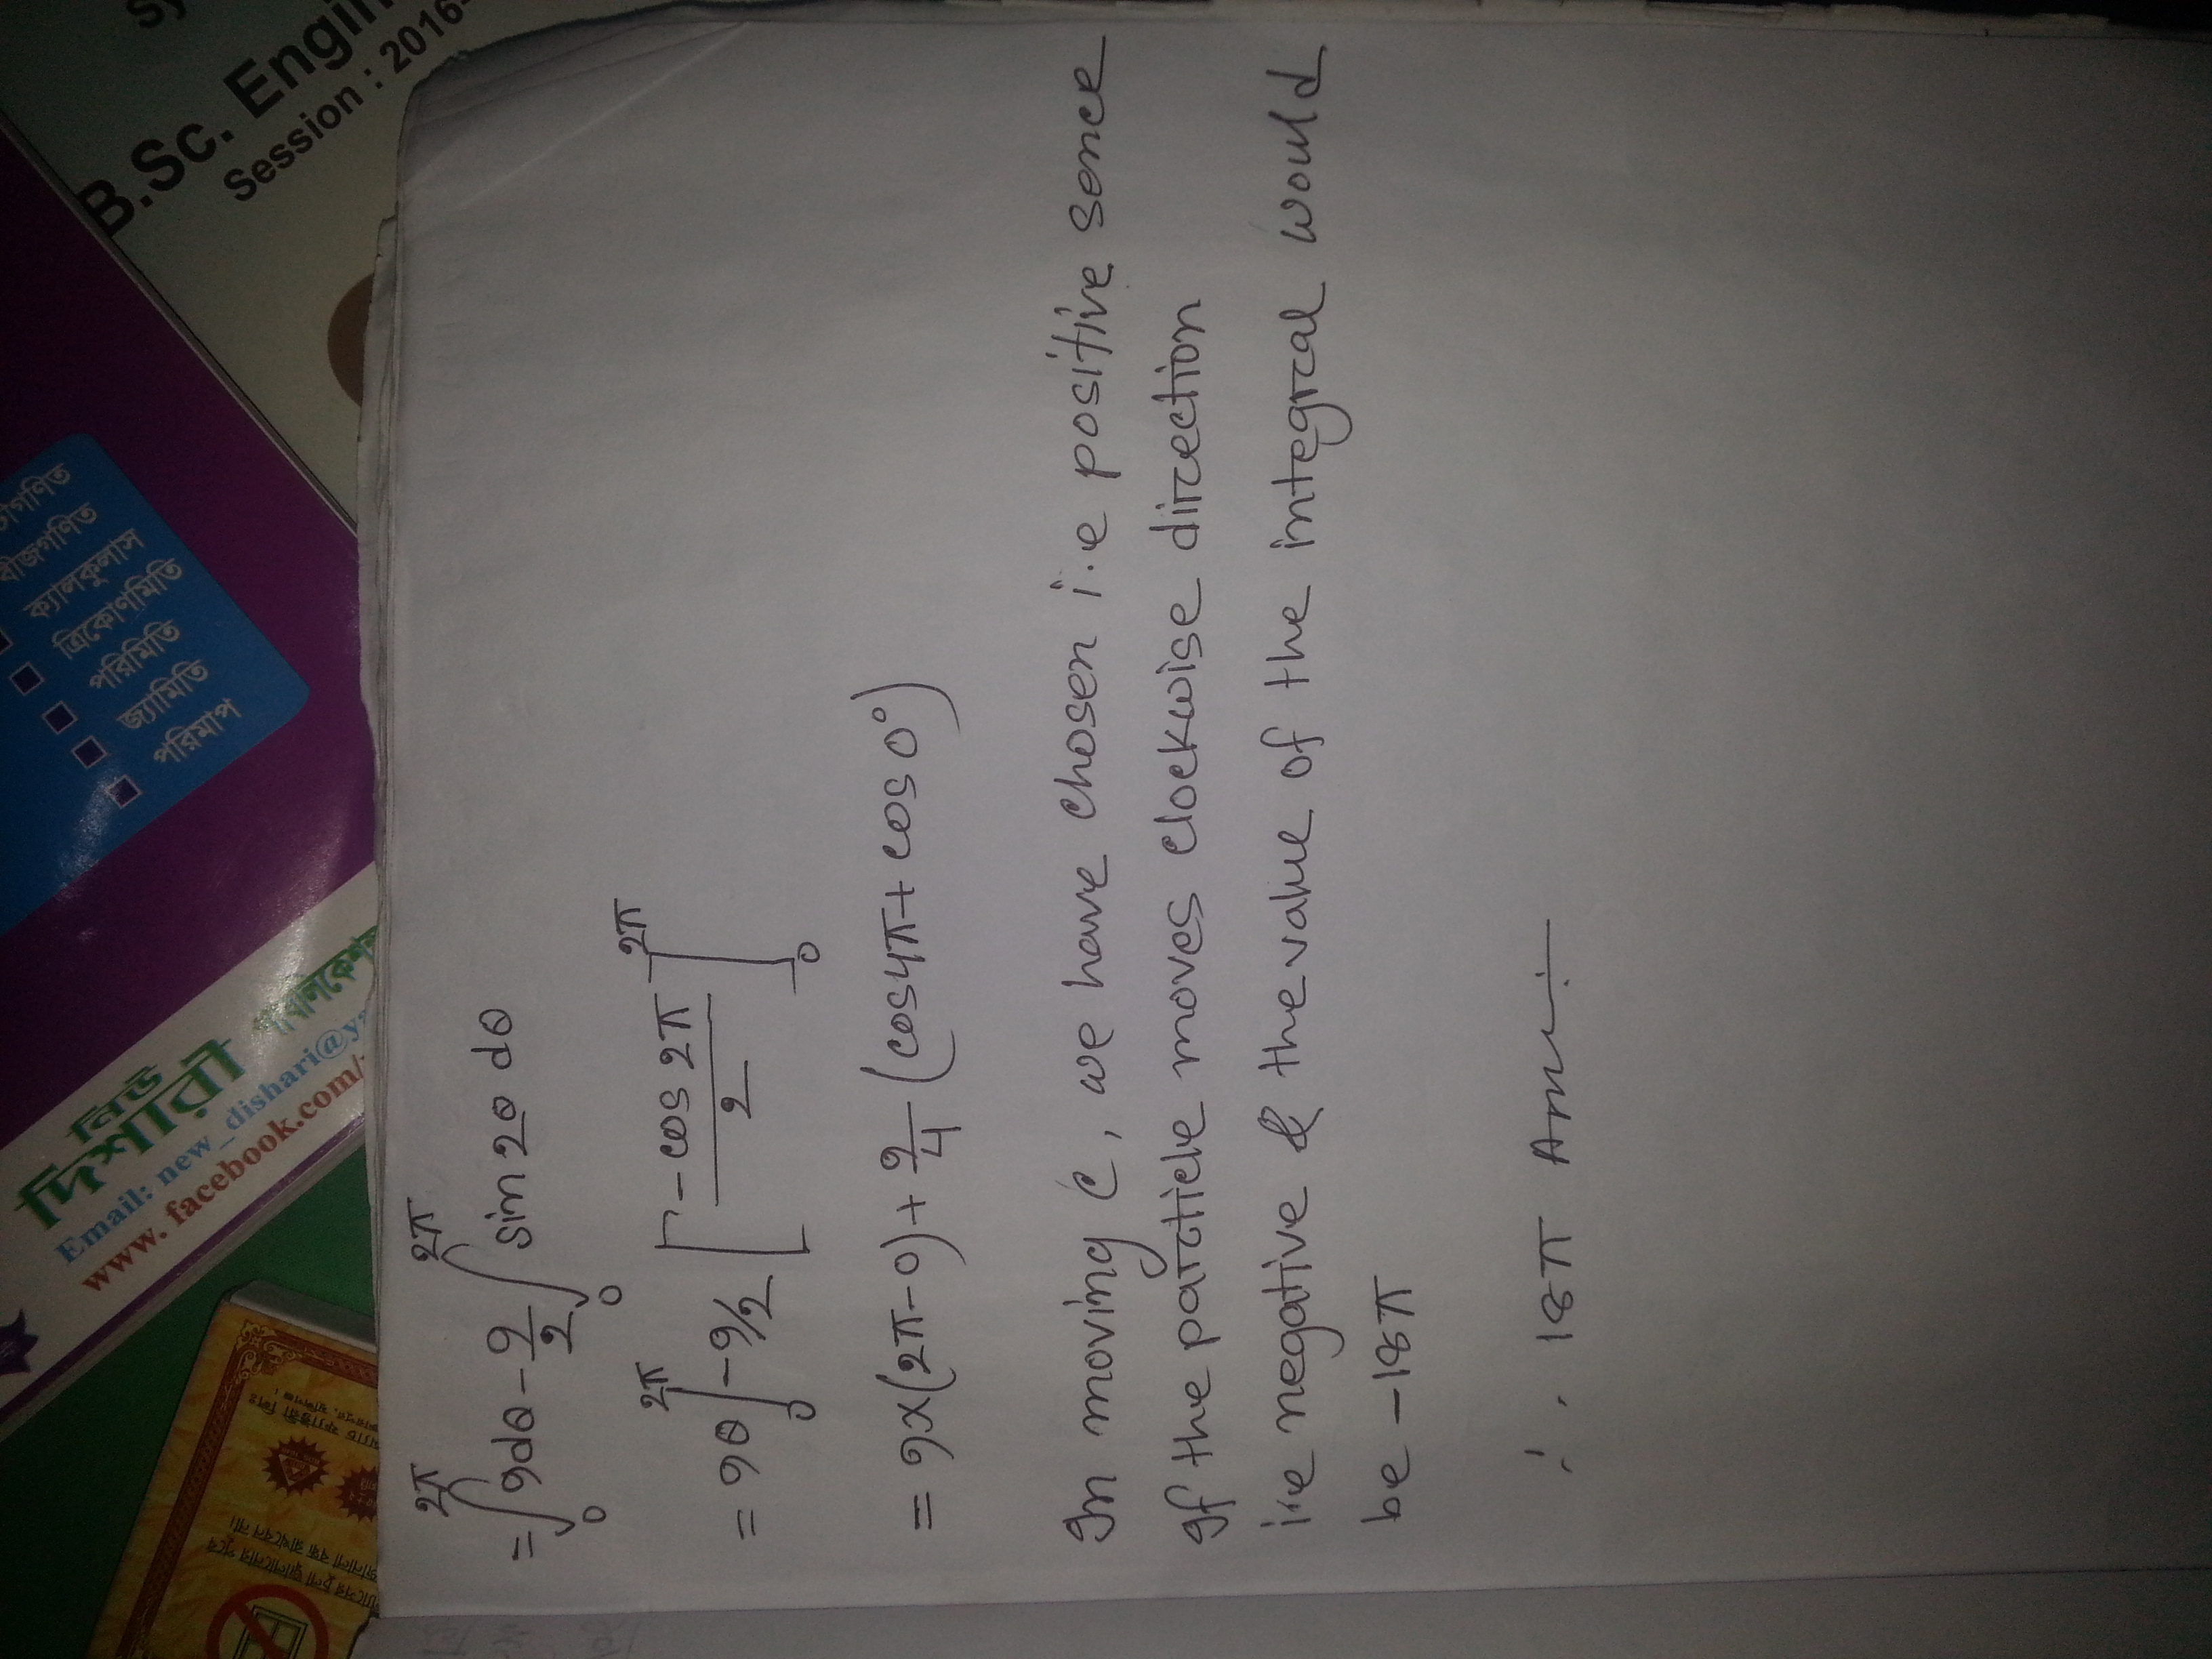 নিউ
দিশারী
Email: new_dishari@ya
www.facebook.com/
ক্যালকুলাস
ত্রিকোণমিতি
পরিমিতি
জ্যামিতি
পরিমাপ
B.Sc. Engin
Session : 2016-
= ∫₀^2π 9dθ - 9/2 ∫₀^2π sin 2θ dθ
= 9θ]₀^2π - 9/2 [-cos 2π / 2]₀^2π
= 9x(2π-0) + 9/4 (cos4π + cos 0°)
In moving c, we have chosen i.e positive sence
If the particle moves clockwise direction
i.e negative & the value of the integral would
be -18π
∴ 18π Ans: